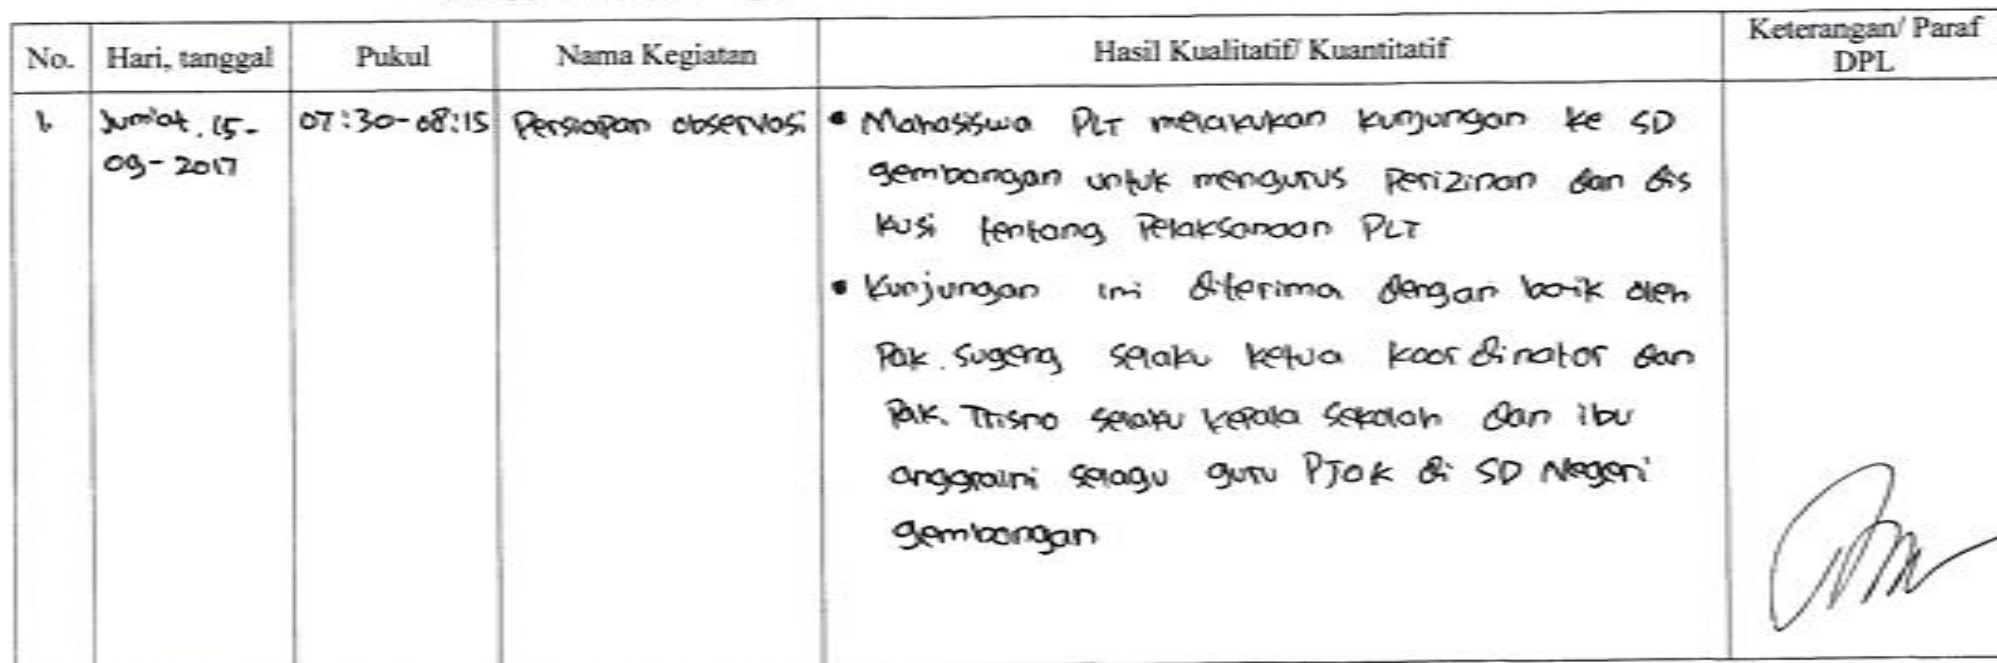 No. Hari, tanggal Pukul Nama Kegiatan Hasil Kualitatif/ Kuantitatif Keterangan/ Paraf
DPL
1. Jum'at, 15- 07:30-08:15 Persiapan observasi • Mahasiswa PLT melakukan kunjungan ke SD
09-2017 gembangan untuk mengurus Perizinan dan dis
kusi tentang Pelaksanaan PLT
• Kunjungan ini diterima dengan baik oleh
Pak. Sugeng selaku ketua koordinator dan
Pak. Trisno selaku kepala sekolah dan ibu
anggraini selagu guru PJOK di SD Negeri
gembangan